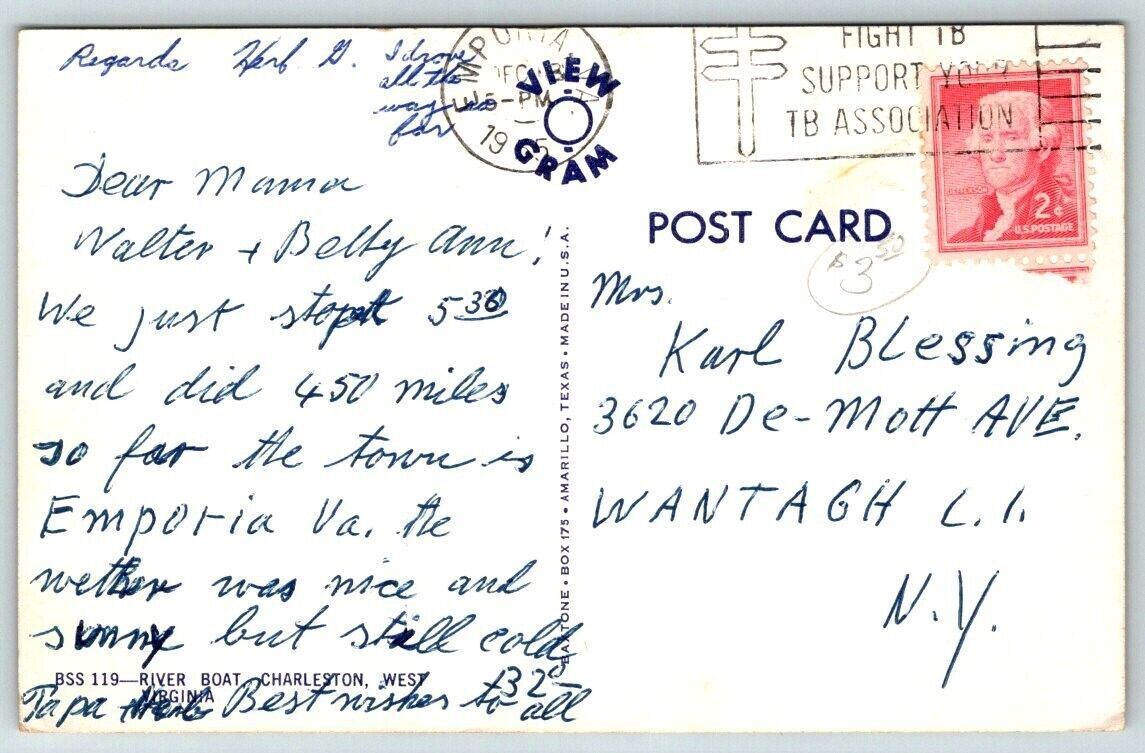 Regards Herb G. I drove
all the
way so
far
Dear Mama
Walter + Betty Ann!
We just stopt 5 30
and did 450 miles
so far the town is
Emporia Va. the
wether was nice and
sunny but still cold
32°
Papa Best wishes to all
BSS 119—RIVER BOAT, CHARLESTON, WEST
VIRGINIA
EMPORIA
DEC
5-PM
19
VIEW
GRAM
BAXTONE • BOX 175 • AMARILLO, TEXAS • MADE IN U.S.A.
FIGHT TB
SUPPORT YOUR
TB ASSOCIATION
JEFFERSON
2¢
U.S. POSTAGE
POST CARD
$3 50
Mrs.
Karl Blessing
3620 De-Mott AVE.
WANTAGH L.I.
N.Y.